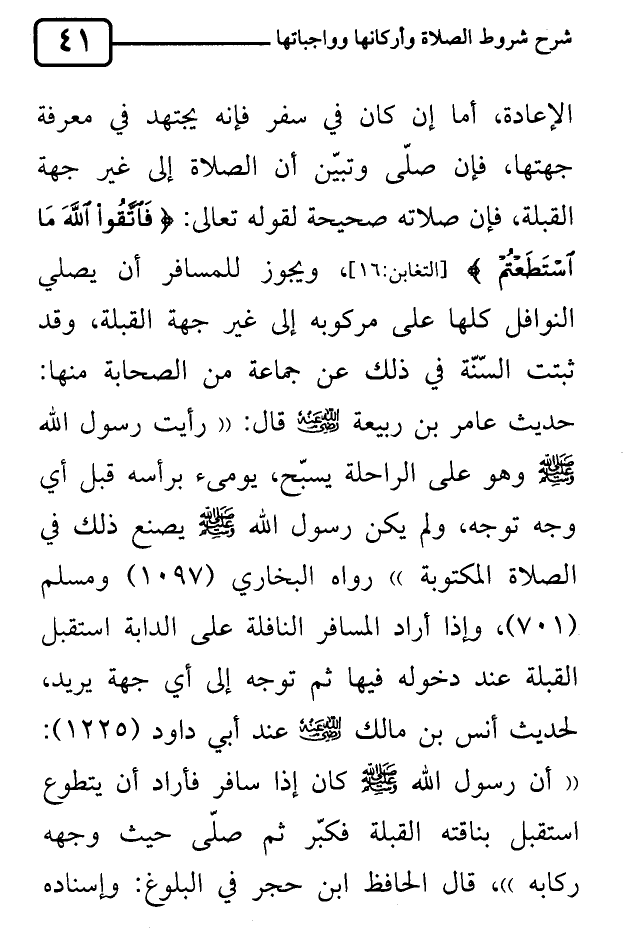 شرح شروط الصلاة وأركانها وواجباتها ٤١
الإعادة، أما إن كان في سفر فإنه يجتهد في معرفة
جهتها، فإن صلّى وتبيّن أن الصلاة إلى غير جهة
القبلة، فإن صلاته صحيحة لقوله تعالى: ﴿ فَٱتَّقُوا۟ ٱللَّهَ مَا
ٱسْتَطَعْتُمْ ﴾ [التغابن:١٦]، ويجوز للمسافر أن يصلي
النوافل كلها على مركوبه إلى غير جهة القبلة، وقد
ثبتت السّنّة في ذلك عن جماعة من الصحابة منها:
حديث عامر بن ربيعة رضي الله عنه قال: (( رأيت رسول الله
ﷺ وهو على الراحلة يسبّح، يومىء برأسه قبل أي
وجه توجه، ولم يكن رسول الله ﷺ يصنع ذلك في
الصلاة المكتوبة )) رواه البخاري (١٠٩٧) ومسلم
(٧٠١)، وإذا أراد المسافر النافلة على الدابة استقبل
القبلة عند دخوله فيها ثم توجه إلى أي جهة يريد،
لحديث أنس بن مالك رضي الله عنه عند أبي داود (١٢٢٥):
(( أن رسول الله ﷺ كان إذا سافر فأراد أن يتطوع
استقبل بناقته القبلة فكبّر ثم صلّى حيث وجهه
ركابه ))، قال الحافظ ابن حجر في البلوغ: وإسناده